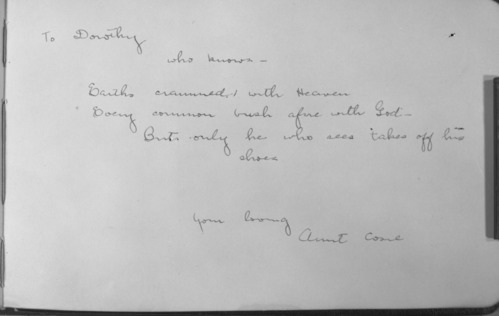 To Dorothy
who knows –
Earths crammed with Heaven
Every common bush afire with God –
But only he who sees takes off his
shoes
Your loving
Aunt